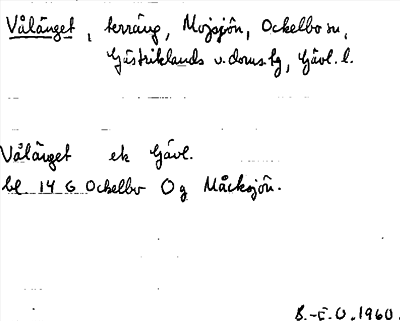 Vålänget, terräng, Mojsjön, Ockelbo sn,
Gästriklands v. doms.hg, Gävl. l.
Vålänget ek Gävl.
bl 14 G Ockelbo 0 g Måcksjön.
B.-E.O. 1960.